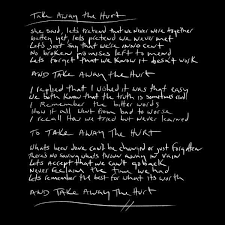 Take Away the Hurt
she said, lets pretend that we never were together
better yet, lets pretend we never met
Lets just say that we're innocent
No broken promises left to mend
Lets forget that we know it doesn't work
AND TAKE AWAY the Hurt
I replied that I wished it was that easy
we both know that the truth is sometimes cold
I Remember the bitter words
How it all went from bad to worse
I recall how we tried but never learned
TO TAKE AWAY THE HURT
Whats been done could be changed or just forgotten
theres no knowing whats now in vain
Lets accept that we can't go back
Never the time we had
lets remember the best for what its worth
AND TAKE AWAY THE HURT